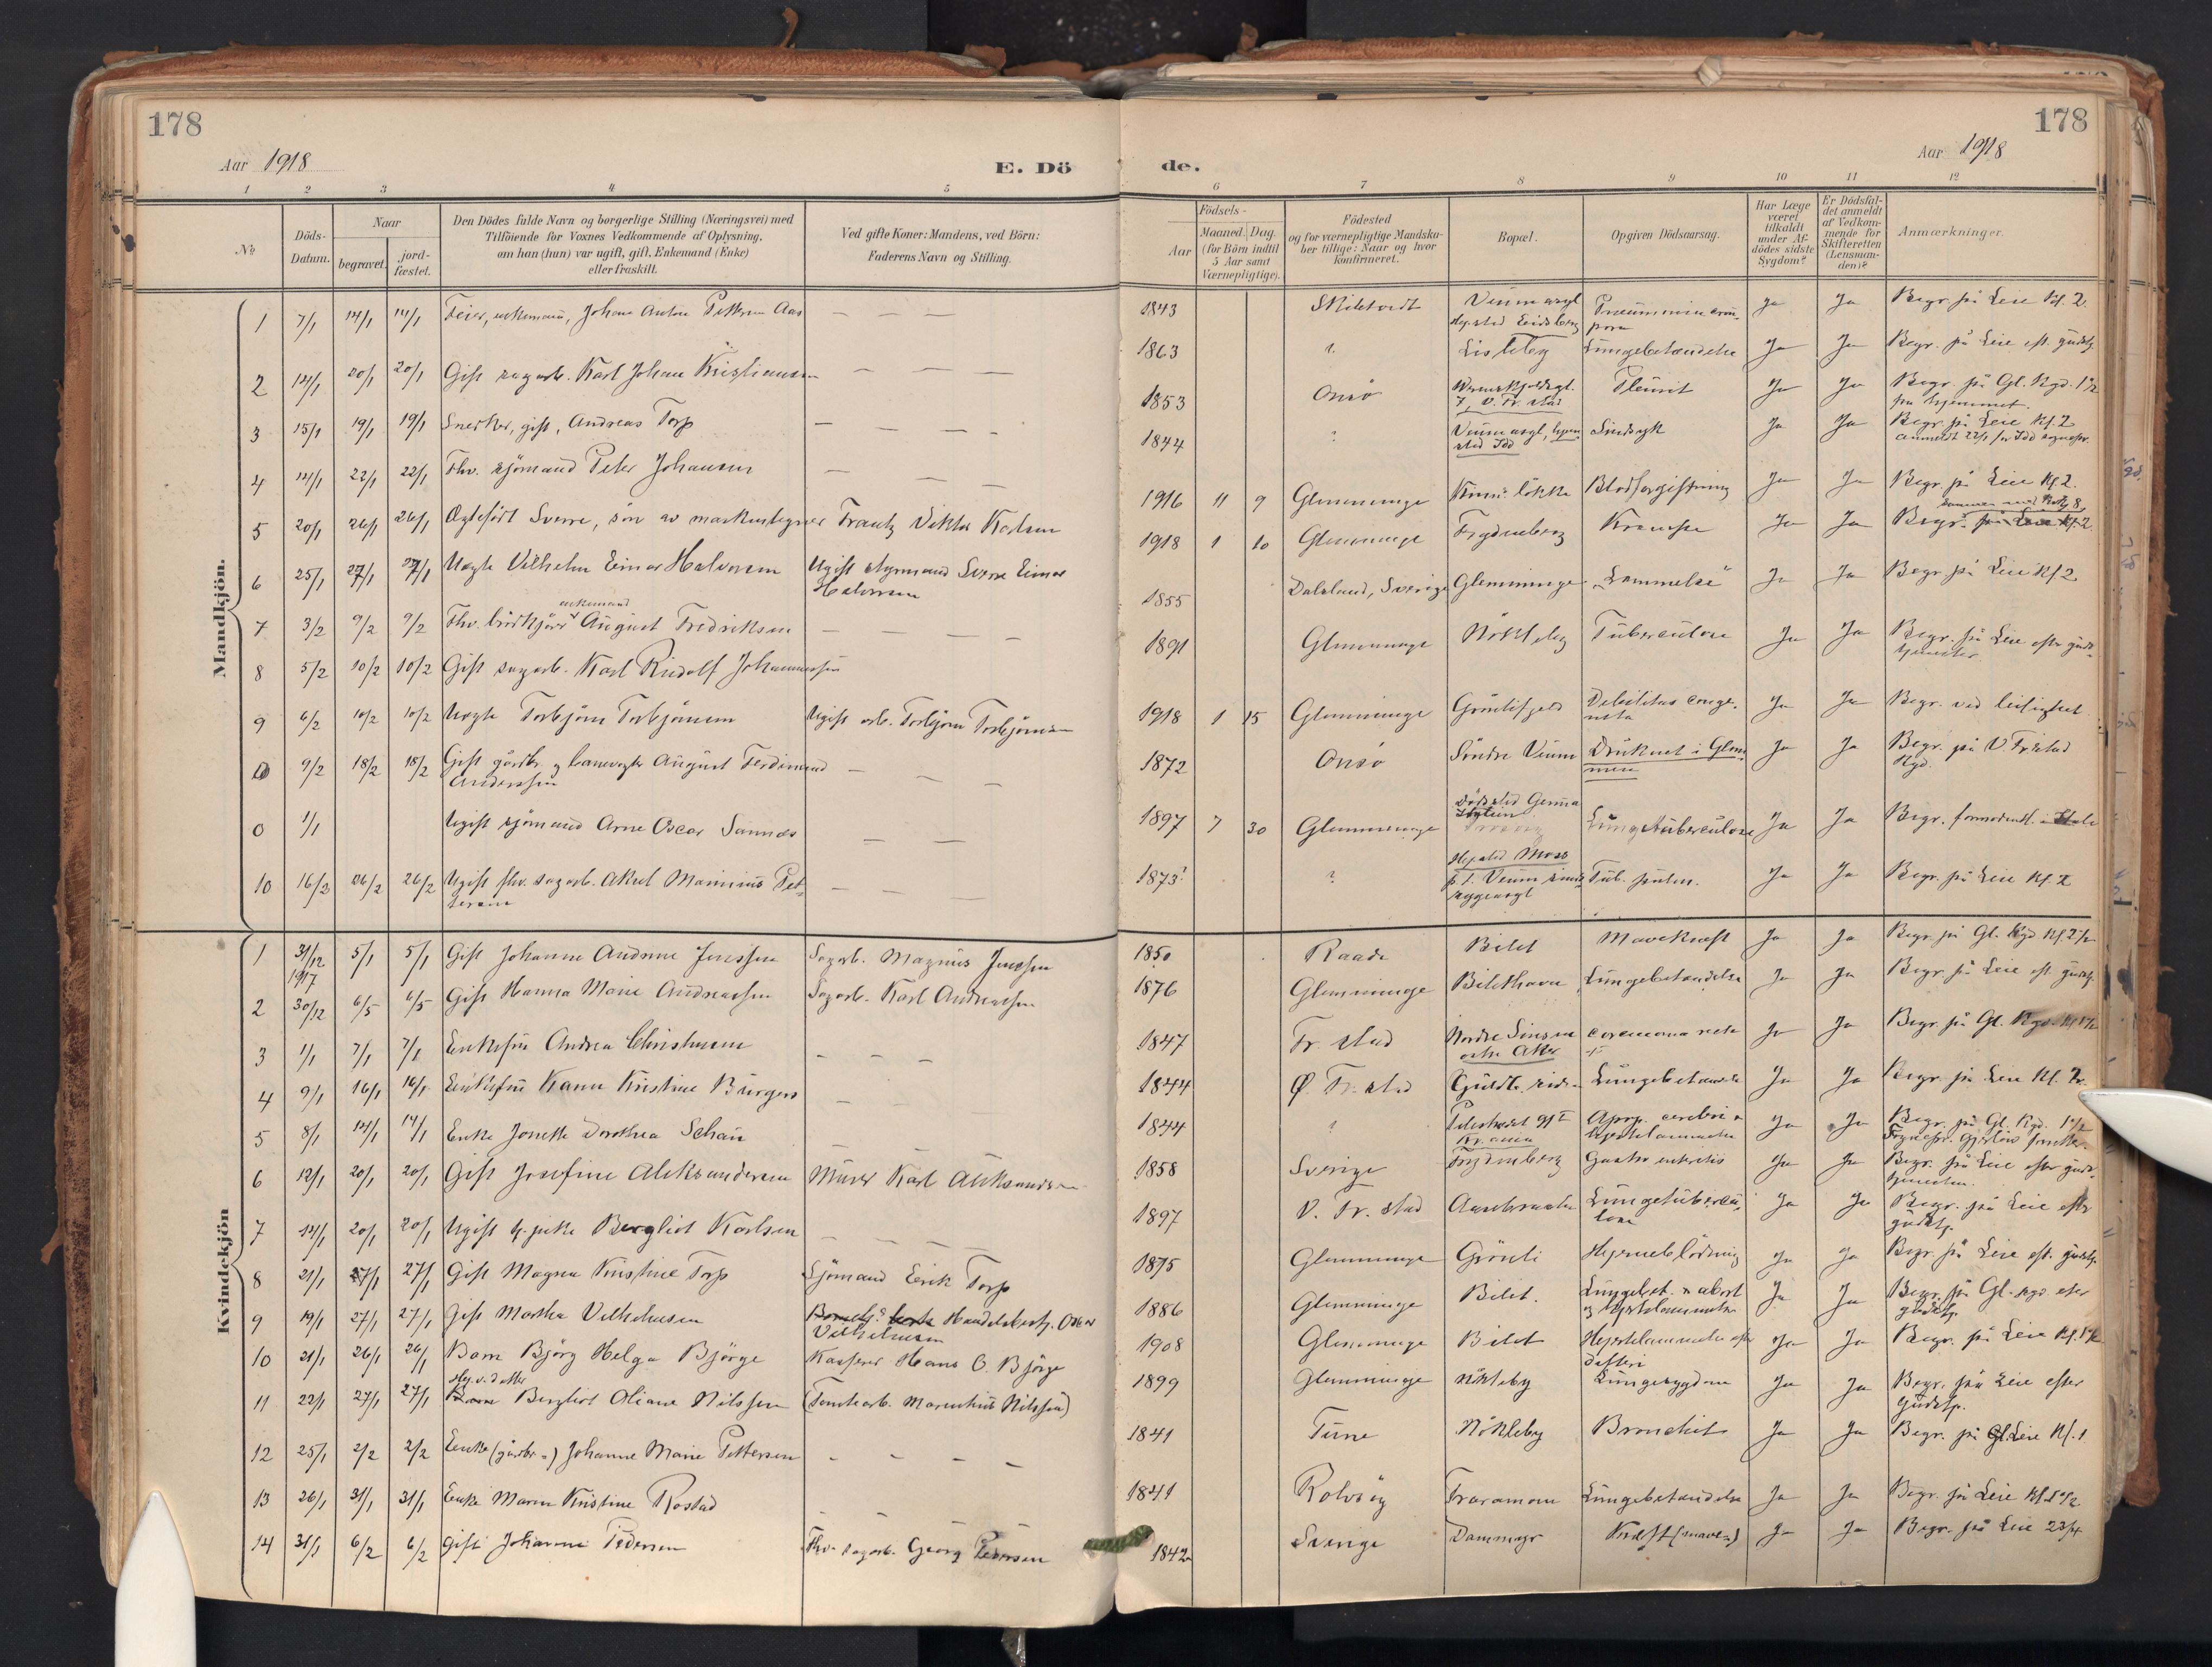 178
Aar 1918
E. Dö
1 2 3 4 5
№
Döds-Datum.
Naar
begravet.
jord-fæstet.
Den Dödes fulde Navn og borgerlige Stilling (Næringsvei) med
Tilföiende for Voxnes Vedkommende af Oplysning,
om han (hun) var ugift, gift, Enkemand (Enke)
eller fraskilt.
Ved gifte Koner: Mandens, ved Börn:
Faderens Navn og Stilling.
Mandkjön.
1 7/1 14/1 14/1 Feier, enkemand, Johan Anton Pettersen Aas — — —
2 14/1 20/1 20/1 Gift sagarb. Karl Johan Kristiansen — — —
3 15/1 19/1 19/1 Snekker, gift, Andreas Torp — — — —
4 14/1 22/1 22/1 Fhv. sjömand Peter Johansen — — —
5 20/1 26/1 26/1 Ægtefödt Sverre, sön av maskintegner Frantz Viktor Karlsen
6 25/1 27/1 27/1 Uægte Vilhelm Einar Halvorsen Ugift styrmand Sverre Einar
Halvorsen
enkemand
7 3/2 9/2 9/2 Fhv. August Fredriksen — — — —
8 5/2 10/2 10/2 Gift sagarb. Karl Rudolf Johannessen
9 6/2 10/2 10/2 Uægte Torbjörn Torbjörnsen Ugift arb. Torbjörn Torbjörnsen
10 9/2 18/2 18/2 Gift gårdbr. og banevogter August Ferdinand — —
Anderssen
0 1/1 Ugift sjömand Arne Oscar Sannæs — —
10 16/2 26/2 26/2 Ugift fhv. sagarb. Aksel Marinius Pet- — — —
tersen
Kvindekjön
1 31/12 5/1 5/1 Gift Johanne Andrine Jenssen Sagarb. Magnus Jenssen
1917
2 30/12 6/5 6/5 Gift Hanna Marie Andreassen Sagarb. Karl Andreassen
3 1/1 7/1 7/1 Enkefru Andrea Christensen — — — —
4 9/1 16/1 16/1 Enkefru Karen Kristine Bürgers — — —
5 8/1 14/1 14/1 Enke Jonette Dorothea Schau —
6 12/1 20/1 20/1 Gift Josefine Aleksandersen Murer Karl Aleksandersen
7 14/1 20/1 20/1 Ugift tj. pike Bergliot Karlsen — — — —
8 21/1 27/1 27/1 Gift Magna Kristine Torp Sjömand Eirik Torp
9 19/1 27/1 27/1 Gift Martha Vilhelmsen Handelsbestj. Oskar
Vilhelmsen
10 21/1 26/1 26/1 Barn Björg Helga Björge Kasserer Hans O. Björge
Hj.v. datter
11 22/1 27/1 27/1 Barn Bergliot Oliane Nilssen (Tomtearb. Marentius Nilssen)
12 25/1 2/2 2/2 Enke (gårdbr.-) Johanne Marie Pettersen - - - -
13 26/1 31/1 31/1 Enke Maren Kristine Rostad
14 31/1 6/2 6/2 gift Johanne Pedersen Fhv. sagarb. Georg Pedersen
178
Aar 1918
de.
6 7 8 9 10 11 12
Födsels-
Aar
Maaned.
Dag.
(for Börn indtil
5 Aar samt
Værnepligtige).
Födested
og for værnepligtige Mandska-
ber tillige: Naar og hvor
konfirmeret.
Bopæl.
Opgiven Dödsaarsag.
Har Læge
været
tilkaldt
under Af-
dödes sidste
Sygdom?
Er Dödsfal-
det anmeldt
af Vedkom-
mende for
Skifteretten
(Lensman-
den)?
Anmærkninger.
1843 Veum asyl Ja Ja Begr. på Leie Kl. 2
Hj.sted Eidsberg
1863 ? Lisleby Lungebetændelse Ja Ja Begr. på Leie eft. gudstj.
1853 Onsö Pleurit Ja Ja Begr. på Gl. Kgd. 1½
7, V. Fr. stad fra hjemmet.
1844 ? Veum asyl, hjem- Sindsyk Ja Ja Begr. på Leie Kl. 2
sted Idd anmeldt 22/1 for Idd sognepr.
1916 11 9 Glemminge lökka Blodforgiftning Ja Ja Begr. på Leie Kl 2.
1918 1 10 Glemminge Frydenberg Krampe Ja Ja Begr. på Leie Kl. 2
1855 Dalsland, Sverige Glemminge „Lammelse" Ja Ja Begr. på Leie Kl 2
1891 Glemminge Nökleby Tuberculose Ja Ja Begr. på Leie efter guds-
tjenesten
1918 1 15 Glemminge Grönlifjeld Debilitas conge- Ja Ja Begr. ved leilighet.
nita
1872 Onsö Söndre Veum Druknet i Glom- Ja Ja Begr. på V. Frstad
men Kgd.
1897 7 30 Glemminge Lungetuberculose Ja Ja Begr. formodentl.
Hj.sted Moss
1873? ? p.t. Veum sinds- Tub. pulm. Ja Ja Begr. på Leie Kl. 2
sygeasyl
1850 Raade Bilet Mavekræft Ja Ja Begr. på Gl. Kgd Kl. 2½
1876 Glemminge Bilethavn Lungebetændelse Ja Ja Begr. på Leie eft. gudstj.
1847 Fr. stad Nordre Ja Ja Begr. på Gl. Kgd.
Aker
1844 Ö. Fr. stad Lungebetændelse Ja Ja Begr. på Leie Kl. 2
1844 ? Apop. cerebri Ja Ja Begr. på Gl. Kgd. 1½
Kr.ania hjertelammelse
1858 Sverige Frydenberg Gastro enteritis Ja Ja Begr. på Leie efter guds-
tjenesten.
1897 V. Fr. stad Lungetubercu- Ja Ja Begr. på Leie efter
lose gudstj.
1875 Glemminge Grönli Hjerneblödning Ja Ja Begr. på Leie eft. gudstj.
1886 Glemminge Bilet. Lungebet. & abort Ja Ja Begr. på Gl. kgd. efter
og hjertelammelse gudstj.
1908 Glemminge Bilet Hjertelammelse efter Ja Ja Begr. på Leie Kl. 1½
difteri
1899 Glemminge Nökleby Lungesygdom Ja Ja Begr. på Leie efter
gudstj.
1841 Tune Nökleby Bronchit Ja Ja Begr. på Leie Kl. 1
1841 Rolvsöy Traramoen Lungebetændelse Ja Ja Begr. på Leie
1842 Sverige Dammyr Kræft (mave-) Ja Ja Begr. på Leie